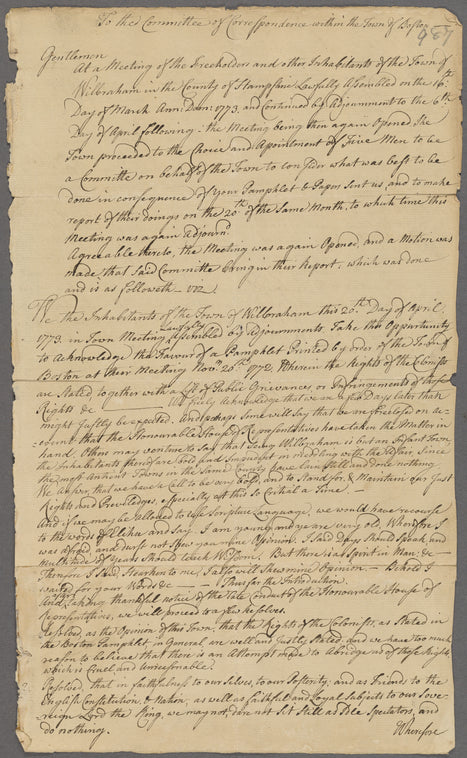 To the Committee of Correspondence within the Town of Boston
Gentlemen
At a Meeting of the Freeholders and other Inhabitants of the Town of
Wilbraham in the County of Hampshire Lawfully Assembled on the 16th
Day of March Ann: Dom: 1773. and Continued by Adjournment to the 6th
Day of April following: the Meeting being then again Opened The
Town proceeded to the Choice and Appointment of Five Men to be
a Committe on behalf of the Town to consider what was best to be
done in consequence of Your Pamphlet & Papers Sent us, and to make
report of their doings on the 20th of the Same Month, to which time this
Meeting was again adjournd.
Agreeable hereto, the Meeting was again Opened, and a Motion was
made that said Committe bring in their Report, which was done
and is as followeth viz.
We the Inhabitants of the Town of Wilbraham this 20th Day of April
1773. in Town Meeting Lawfully Assembled by Adjournments Take this Oppurtunity
to Acknowledge the Favour of a Pamphlet Printed by order of the Town of
Boston at their Meeting Nov. 20th 1772. Wherein the Rights of the Colonists
are Stated, together with a List of Public Grievances or Infringements of those
Rights &c We freely Acknowledge that we are a few Days later than
might Justly be expected. And perhaps Some will Say that we are foreclosed on ac-
count that the Honourable House of Representatives have taken the Matter in
hand. Others may venture to Say that being Wilbraham is but an Infant Town,
the Inhabitants thereof are bold and Impudent in meddling with the Affair Since
the most Antient Towns in the Same County have lain Still and done nothing
We answer, that we have a Call to be very bold, and to Stand for & Maintain our Just
Rights and Priviledges, especially at this so Critical a Time.
And if we may be allowed to use Scripture Language, we would have recourse
to the words of Elihu and Say. I am young and ye are very old, Wherefore I
was afraid, and durst not Shew you mine Opinion. I Said Days Should Speak and
multitude of Years Should teach Wisdom. But there is a Spirit in Man, &c
Therefore I Said, Hearken to me, I also will Shew mine Opinion. Behold I
waited for your Words &c Thus far the Introduction.
And taking thankful notice of the late Conduct of the Honourable House of
Representatives, we will proceed to a few Resolves.
Resolved, as the Opinion of this Town, that the Rights of the Colonists, as Stated in
the Boston Pamphlet, in General are well and Justly Stated, and we have too much
reason to believe that there is an Attempt made to Abridge us of those Rights
which is Cruel and Unreasonable.
Resolved, that in faithfulness to our Selves, to our Posterity, and as Friends to the
English Constitution & Nation, as well as faithful and Loyal Subjects to our Sove-
reign Lord the King, we may not, dare not Sit Still as Idle Spectators, and
do nothing.
Wherefore